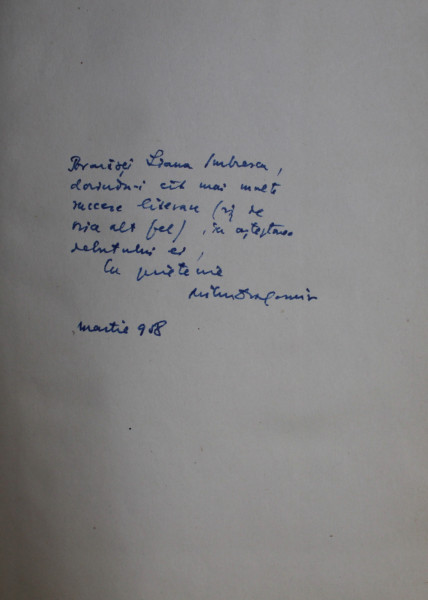 Liana Imbrescu,
dorindu-i cît mai multe
succese literare (și de
orice alt fel), în așteptarea
debutului ei,
Cu prietenie
Mihu Dragomir
martie 958